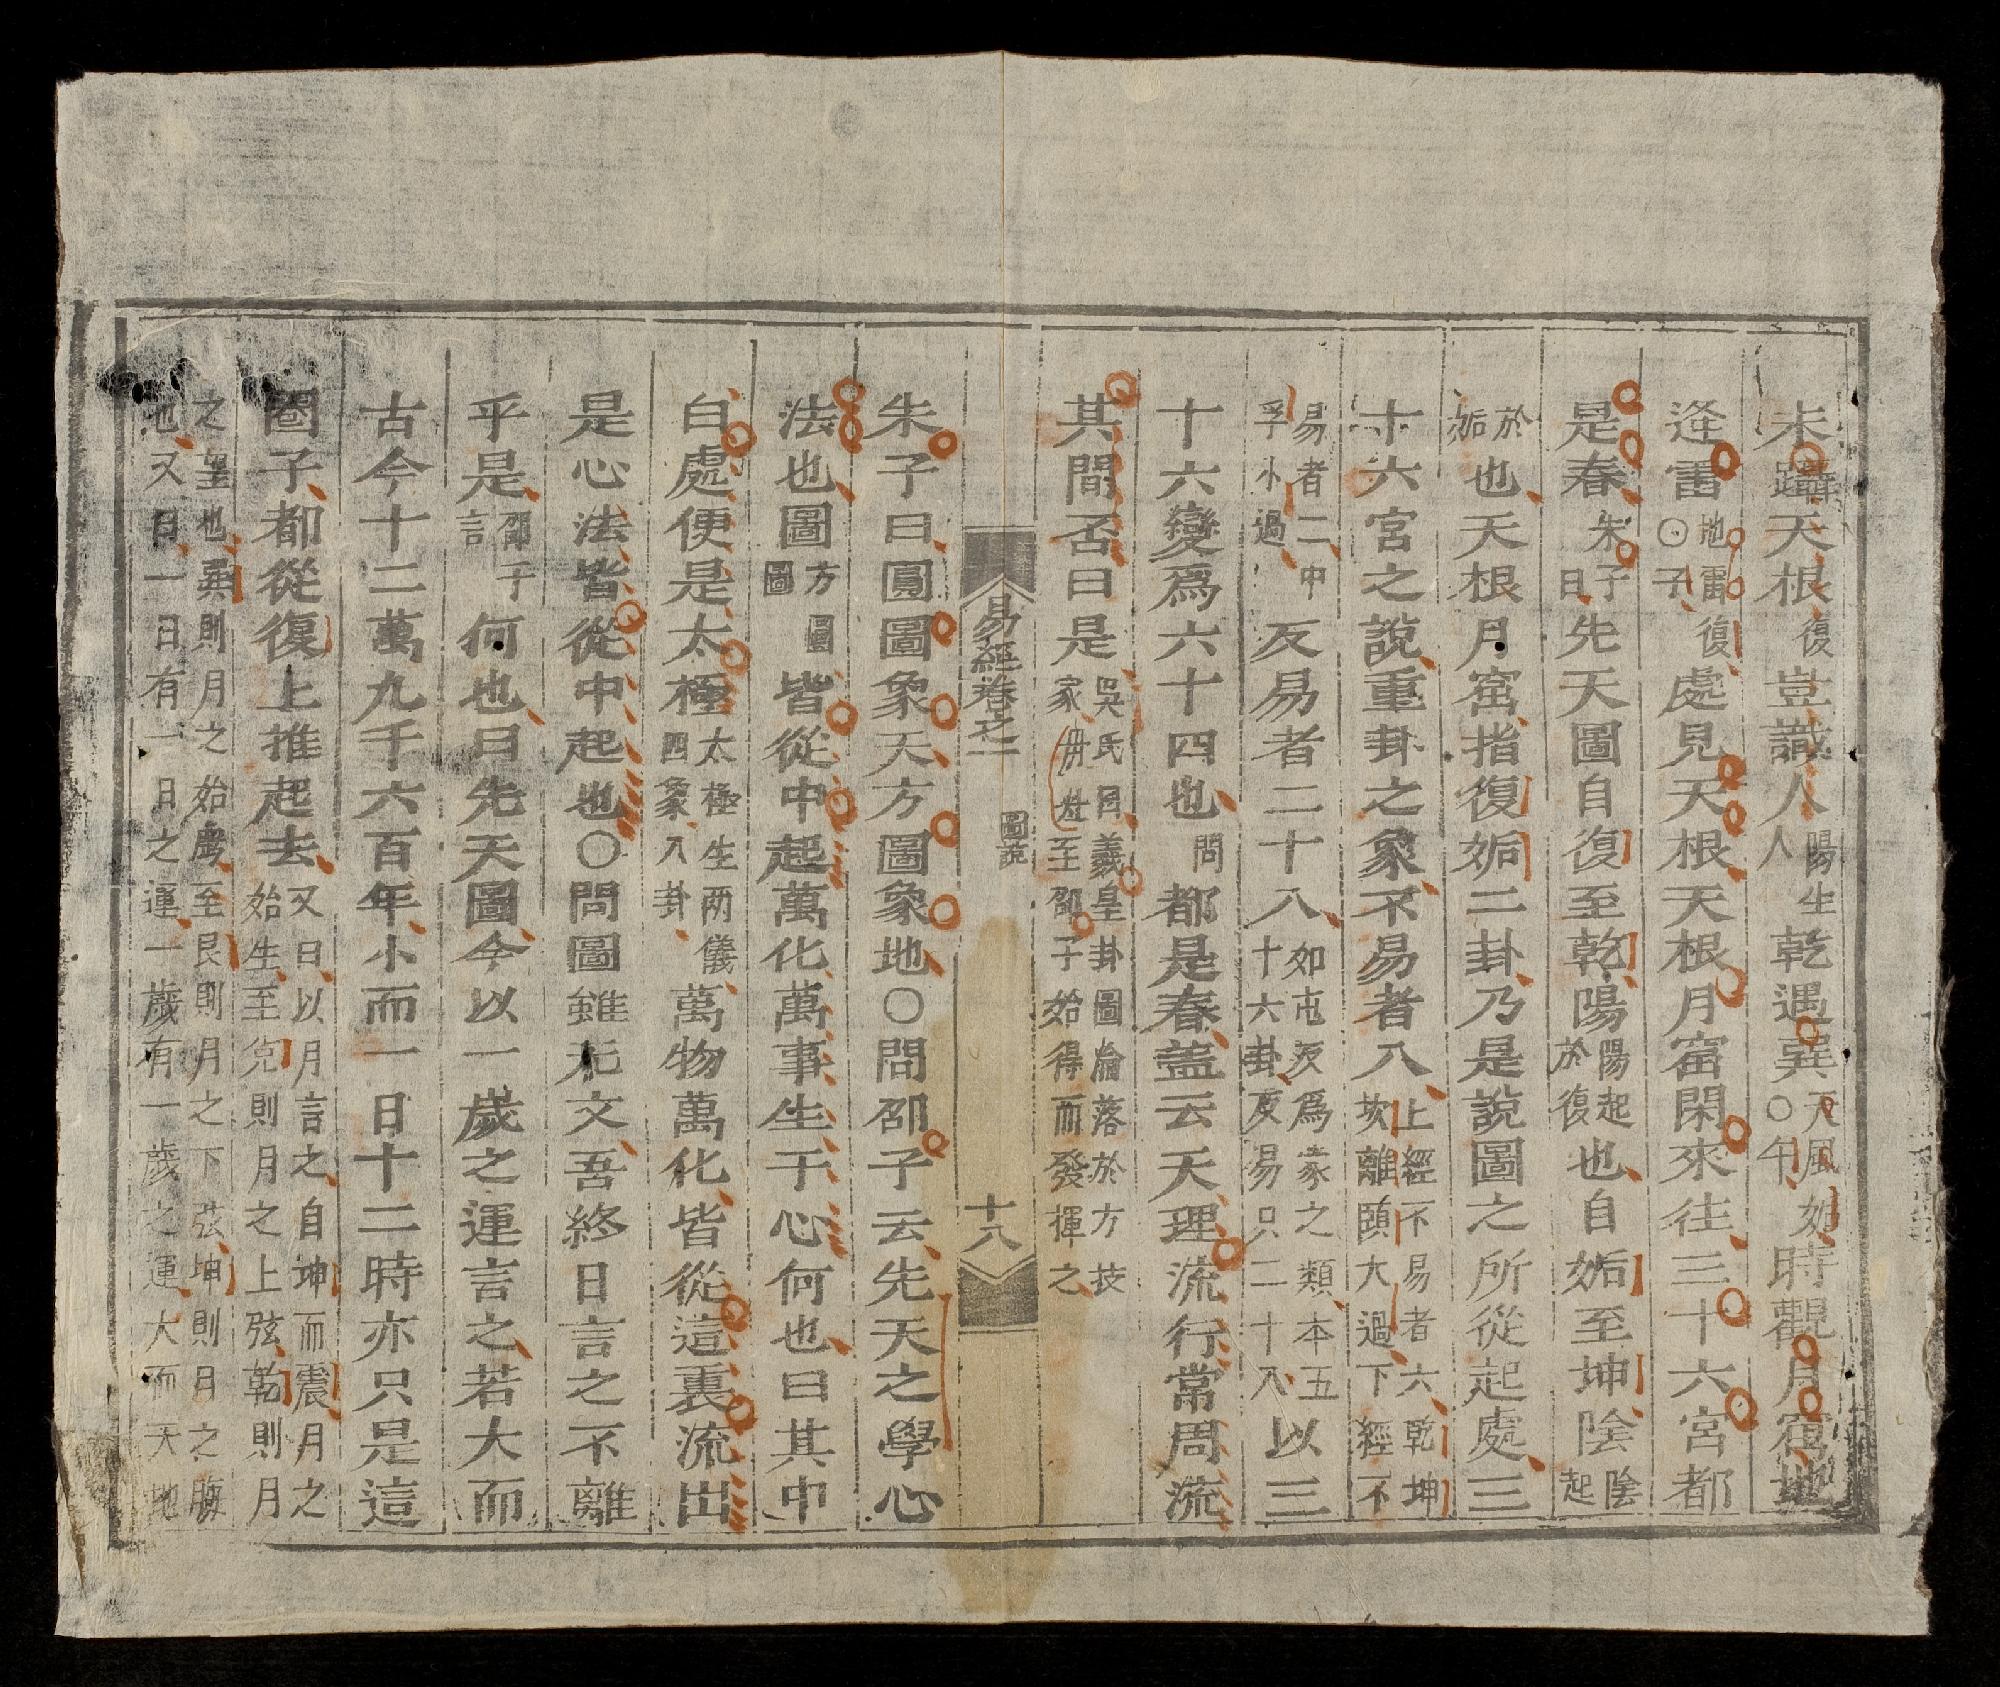 未躡天根復豈識人陽生人乾遇巽天風姤○午時觀月窟地
逄雷地雷復○子處見天根天根月窟閑來往三十六宮都
是春朱子曰先天圖自復至乾陽陽起於復也自姤至坤陰陰起
於姤也天根月窟指復姤二卦乃是說圖之所從起處三
十六宮之說重卦之象不易者八上經不易者六乾坤坎離頤大過下經不
易者二中孚小過反易者二十八如屯反爲蒙之類本五十六卦反易只二十八以三
十六變爲六十四也問都是春盖云天理流行常周流
其間否曰是吳氏曰羲皇卦圖淪落於方技家丹灶至邵子始得而發揮之
易經卷之一 圖說 十八
朱子曰圓圖象天方圖象地○問邵子云先天之學心
法也圖方圖圓圖皆從中起萬化萬事生于心何也曰其中
白處便是太極太極生兩儀四象八卦萬物萬化皆從這裏流出
是心法皆從中起也○問圖雖无文吾終日言之不離
乎是邵子言何也曰先天圖今以一歲之運言之若大而
古今十二萬九千六百年小而一日十二時亦只是這
圈子都從復上推起去又曰以月言之自坤而震月之始生至兌則月之上弦乾則月
之望也巽則月之始虧至艮則月之下弦坤則月之晦也又曰一日有一日之運一歲有一歲之運大而天地